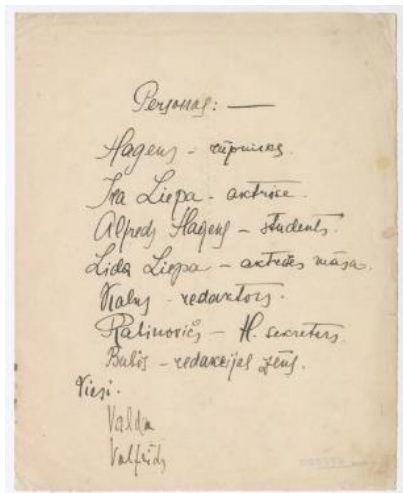 Personas: —
Hagens – rūpnieks.
Iva Liepa – aktrise.
Alfreds Hagens – students.
Lida Liepa – aktrises māsa.
Kalns – redaktors.
Rabinovičs – H. sekretars.
Bulis – redakcijas zēns.
Viesi.
Valda
Valfrids